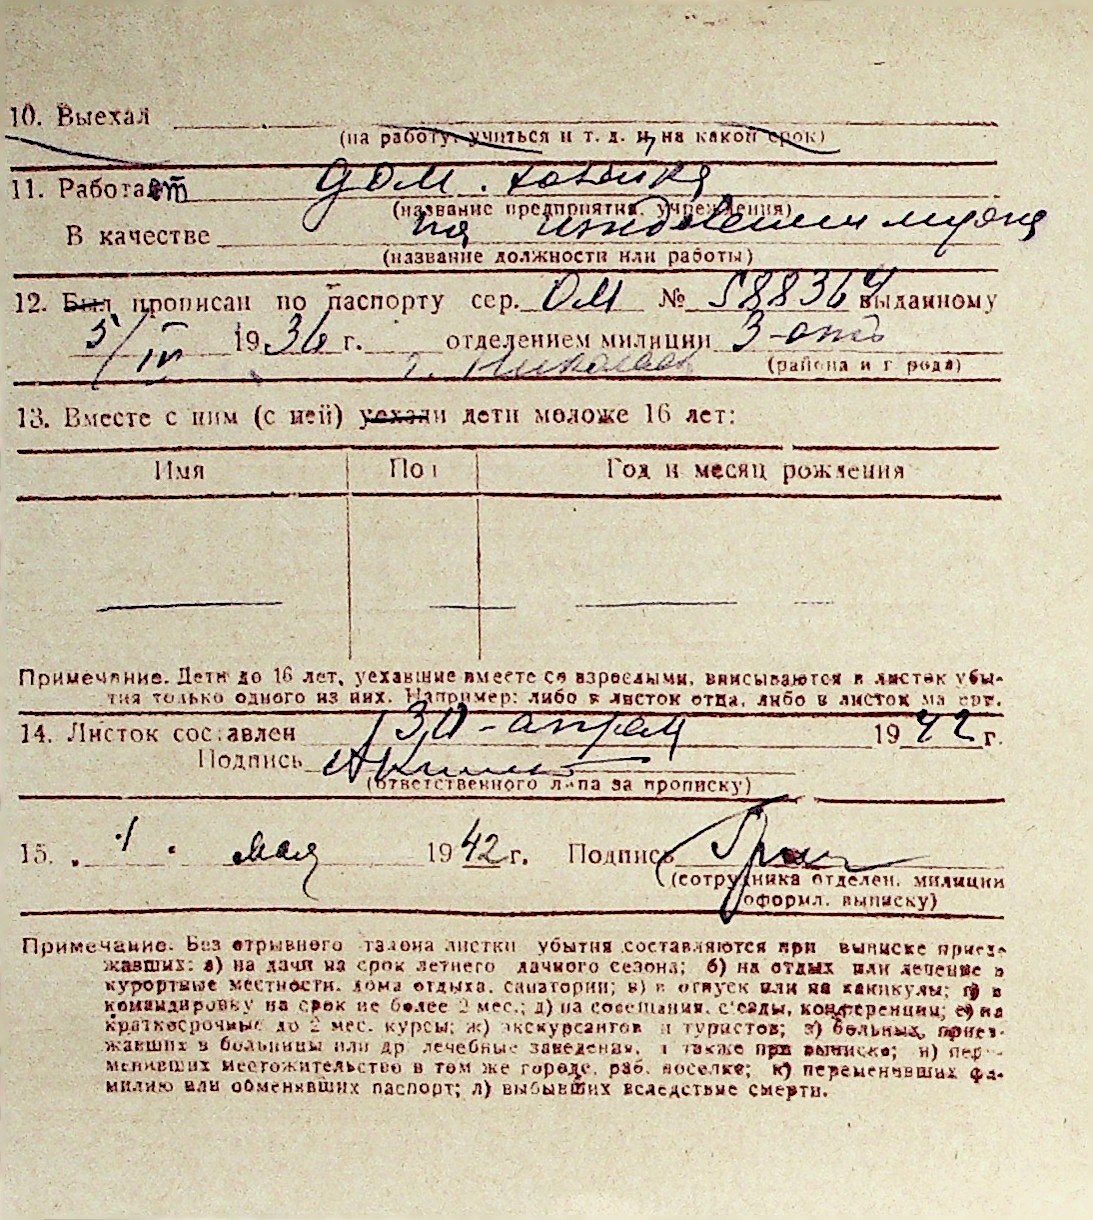 10. Выехал
(на работу, учиться и т. д. и на какой срок)
11. Работает дом. хозяйка
(название предприятия, учреждения)
В качестве на иждивении мужа
(название должности или работы)
12. Был прописан по паспорту сер. ОМ № 588364 выданному
5/IV 1936 г. отделением милиции 3-отд
г. Николаев (района и г рода)
13. Вместе с ним (с ней) уехали дети моложе 16 лет:
Имя Пол Год и месяц рождения
Примечание. Дети до 16 лет, уехавшие вместе со взрослыми, вписываются в листок убы-
тия только одного из них. Например: либо в листок отца, либо в листок ма ери.
14. Листок составлен 30-апреля 1942 г.
Подпись
(ответственного лица за прописку)
15. „ 1 " мая 1942 г. Подпись
(сотрудника отделен. милиции
оформл. выписку)
Примечание. Без отрывного талона листки убытия составляются при выписке приез-
жавших: а) на дачи на срок летнего дачного сезона; б) на отдых или лечение в
курортные местности, дома отдыха, санатории; в) в отпуск или на каникулы; г) в
командировку на срок не более 2 мес.; д) на совещания, с'езды, конференции; е) на
краткосрочные до 2 мес. курсы; ж) экскурсантов и туристов; з) больных, приез-
жавших в больницы или др лечебные заведения, а также при выписке; и) пере-
менивших местожительство в том же городе, раб. поселке; к) переменивших фа-
милию или обменявших паспорт; л) выбывших вследствие смерти.